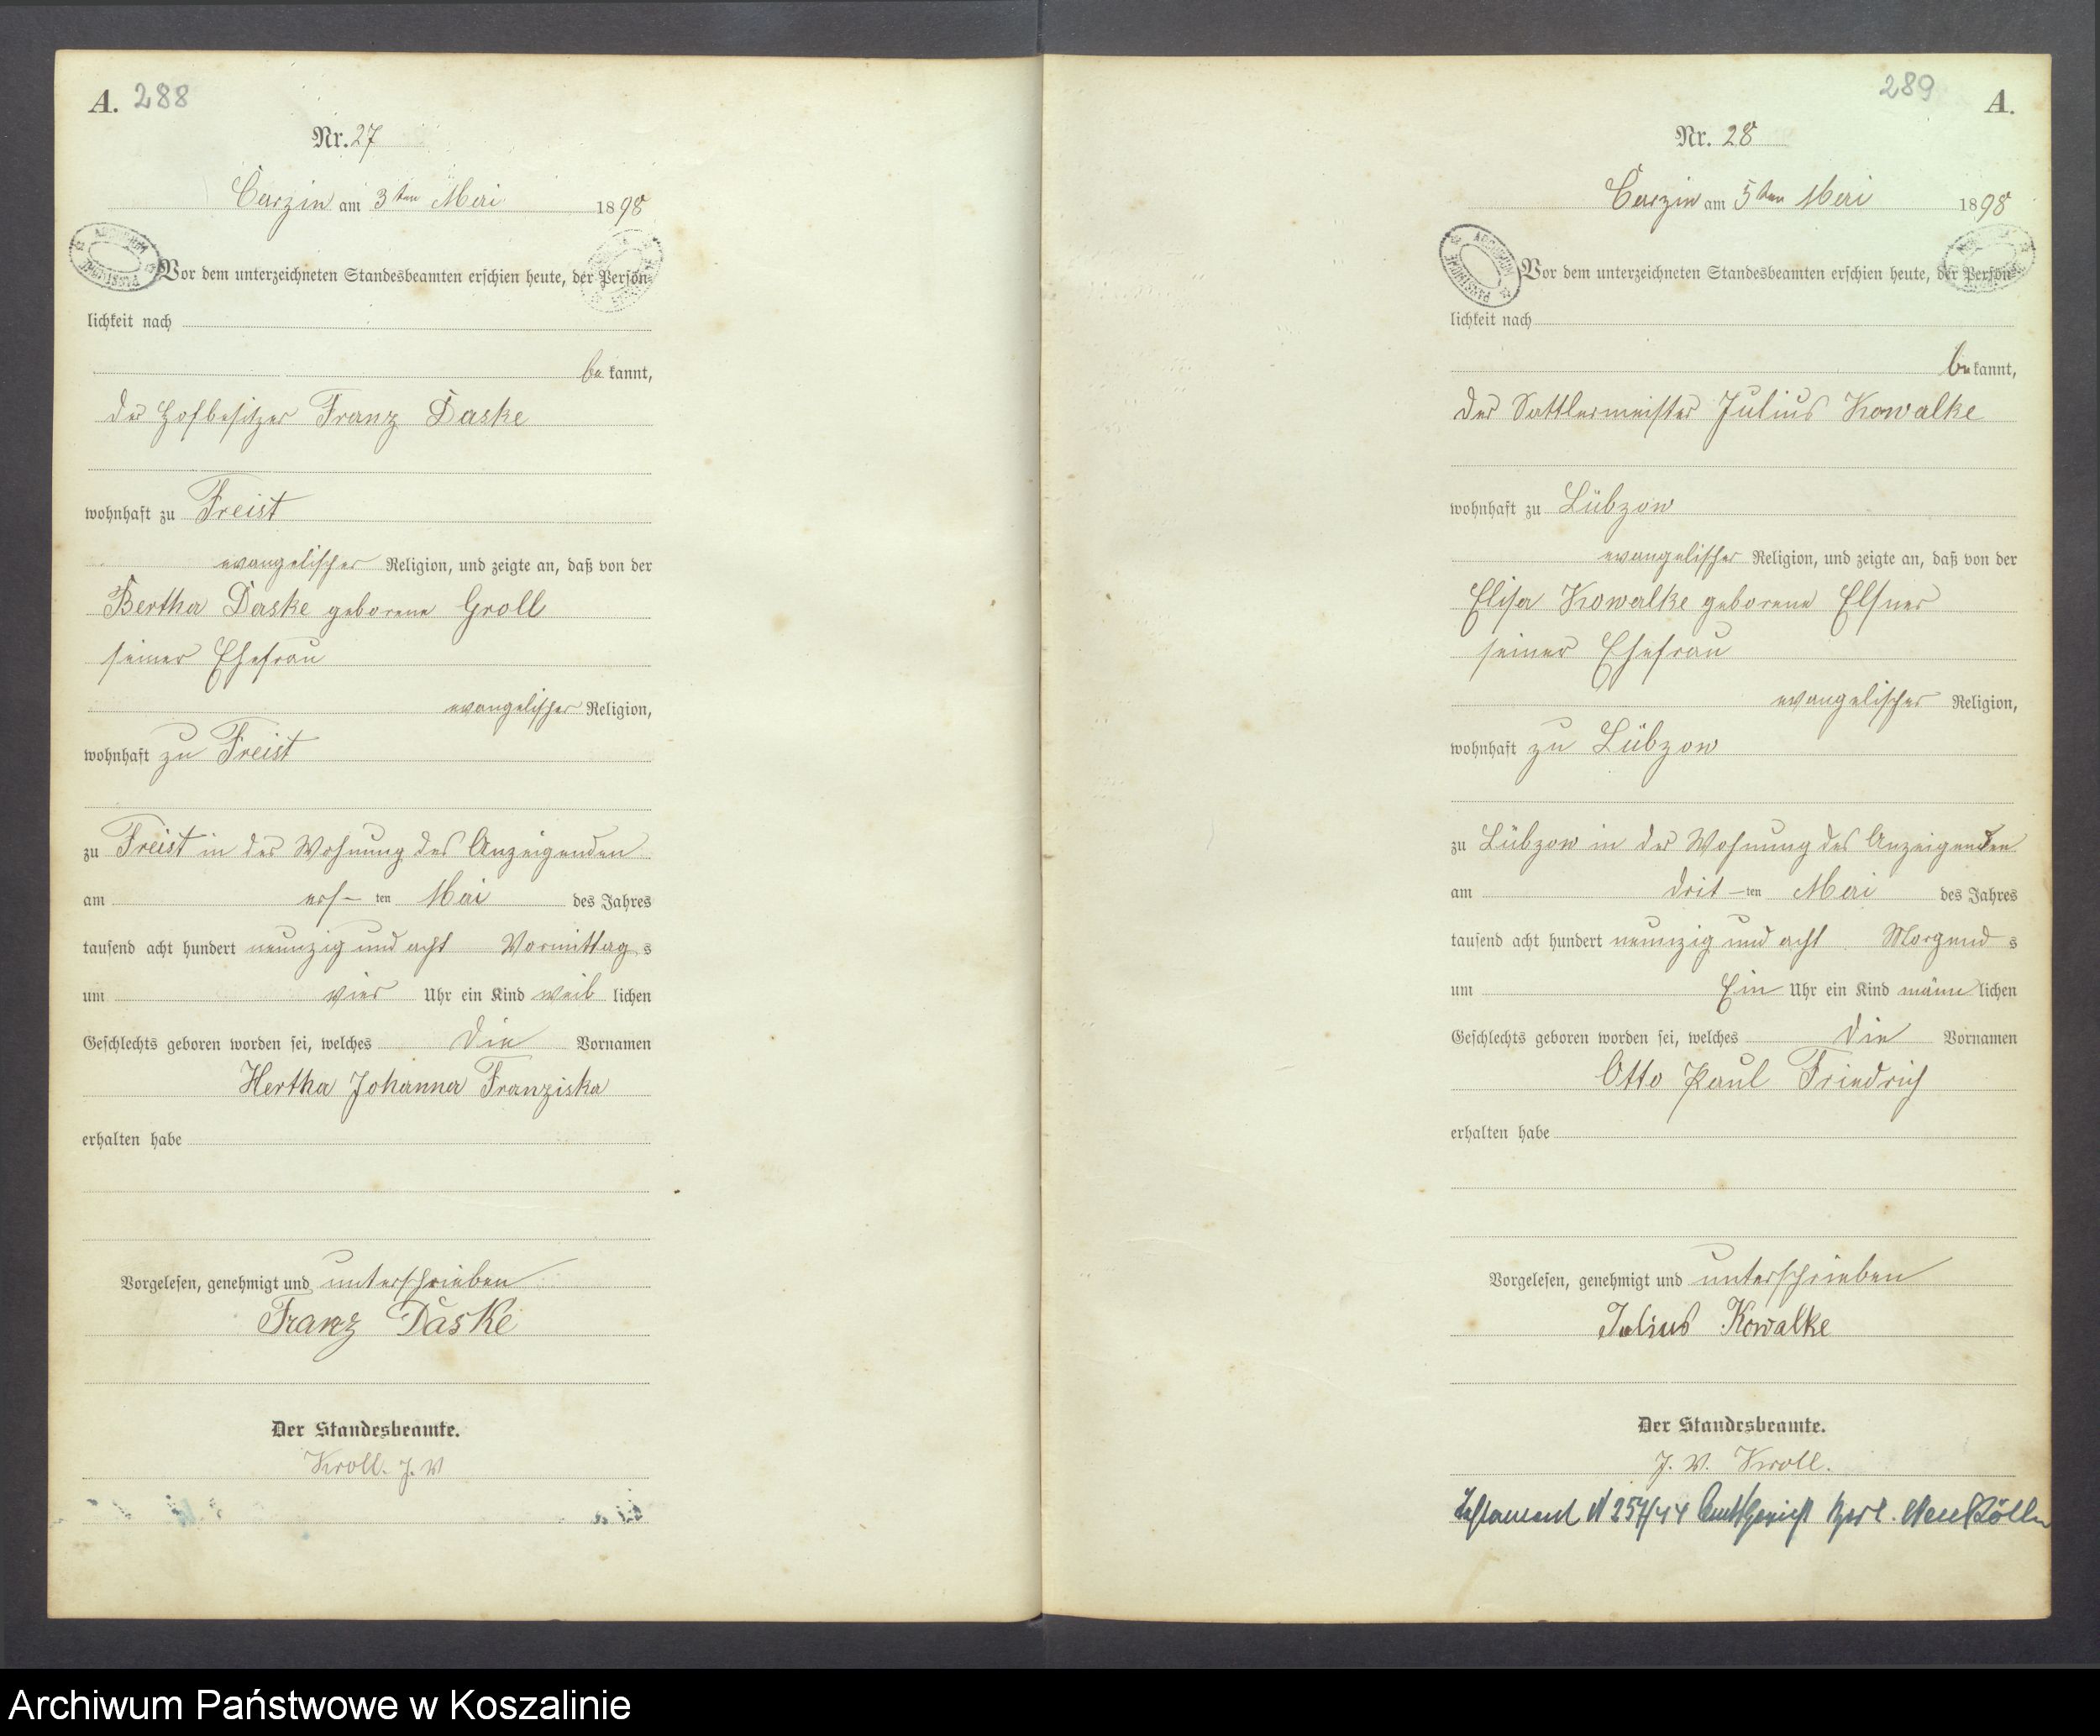 A. 288
Nr. 27
Carzin am 3ten Mai 1898
Vor dem unterzeichneten Standesbeamten erschien heute, der Persön-
lichkeit nach
be kannt,
der Hofbesitzer Franz Daske
wohnhaft zu Freist
evangelischer Religion, und zeigte an, daß von der
Bertha Daske geborene Groll
seiner Ehefrau
evangelischer Religion,
wohnhaft zu Freist
zu Freist in der Wohnung des Anzeigenden
am ers- ten Mai des Jahres
tausend acht hundert neunzig und acht Vormittag s
um vier Uhr ein Kind weib lichen
Geschlechts geboren worden sei, welches die Vornamen
Hertha Johanna Franziska
erhalten habe
Vorgelesen, genehmigt und unterschrieben
Franz Daske
Der Standesbeamte.
Kroll. J. V
289 A.
Nr. 28
Carzin am 5ten Mai 1898
Vor dem unterzeichneten Standesbeamten erschien heute, der Persön-
lichkeit nach
be kannt,
der Sattlermeister Julius Kowalke
wohnhaft zu Lübzow
evangelischer Religion, und zeigte an, daß von der
Elisa Kowalke geborene Elsner
seiner Ehefrau
evangelischer Religion,
wohnhaft zu Lübzow
zu Lübzow in der Wohnung des Anzeigenden
am drit -ten Mai des Jahres
tausend acht hundert neunzig und acht Morgend s
um Ein Uhr ein Kind männ lichen
Geschlechts geboren worden sei, welches die Vornamen
Otto Paul Friedrich
erhalten habe
Vorgelesen, genehmigt und unterschrieben
Julius Kowalke
Der Standesbeamte.
J. V. Kroll.
Testament N 257/44 Amtsgericht Berl. Neukölln
Archiwum Państwowe w Koszalinie